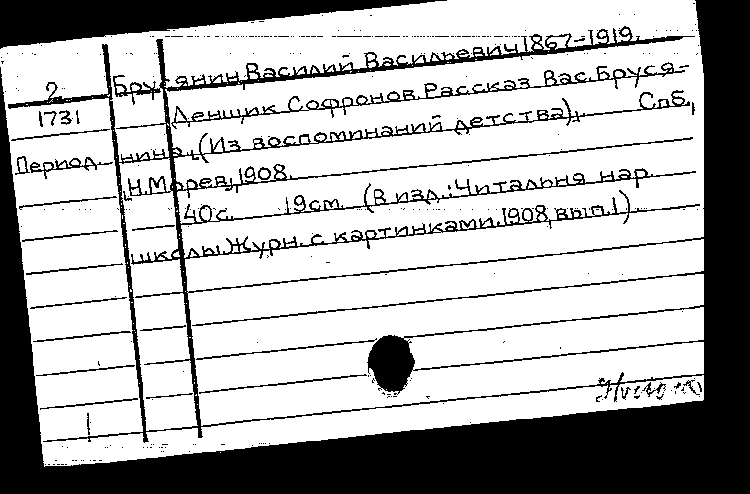 2
1731
Период.
Брусянин, Василий Васильевич, 1867-1919.
Денщик Софронов. Рассказ Вас. Бруся-
нина, (Из воспоминаний детства), Спб.,
Н. Морев, 1908.
40 с. 19 см. (В изд.: Читальня нар.
школы. Журн. с картинками. 1908, вып. 1)